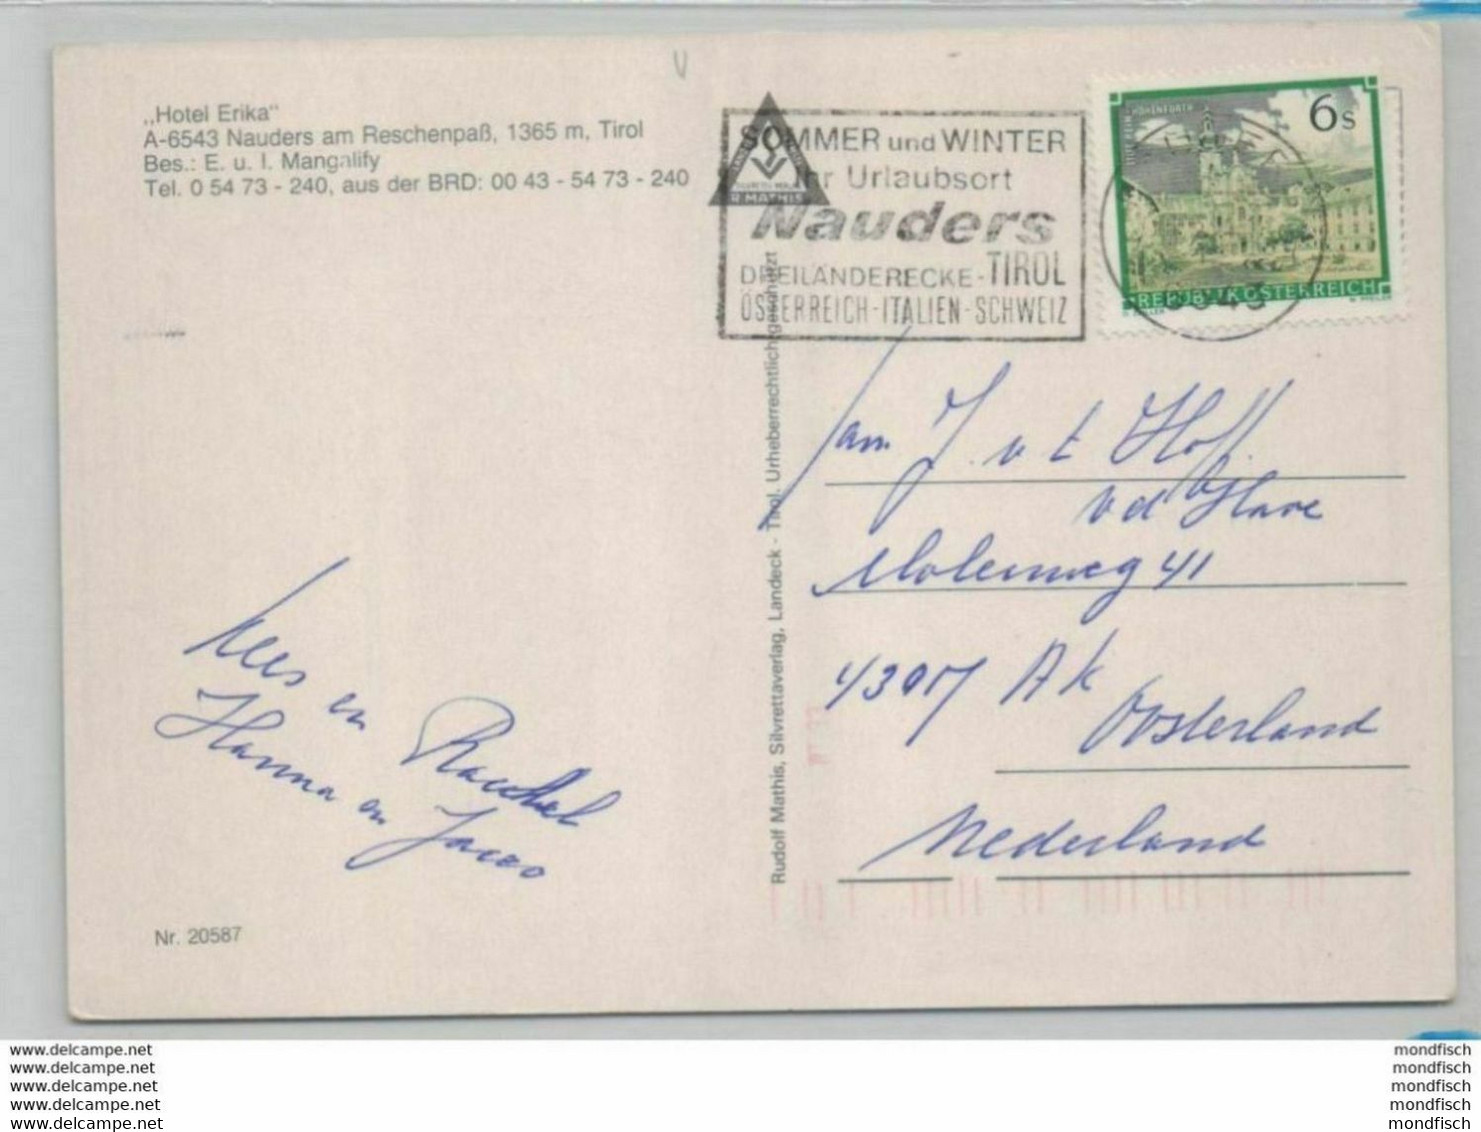 „Hotel Erika"
A-6543 Nauders am Reschenpaß, 1365 m, Tirol
Bes.: E. u. I. Mangalify
Tel. 0 54 73 - 240, aus der BRD: 00 43 - 54 73 - 240
SOMMER und WINTER
Ihr Urlaubsort
Nauders
DREILÄNDERECKE - TIROL
ÖSTERREICH - ITALIEN - SCHWEIZ
R. MATHIS
6 S
REPUBLIK ÖSTERREICH
6543
Rudolf Mathis, Silvrettaverlag, Landeck - Tirol. Urheberrechtlich geschützt
Fam J. v t Hoff
vd Have
Molenweg 41
4307 Ak
Oosterland
Nederland
Kees en Rachel
Hanna en Jacco
Nr. 20587
www.delcampe.net
www.delcampe.net
www.delcampe.net
www.delcampe.net
www.delcampe.net
mondfisch
mondfisch
mondfisch
mondfisch
mondfisch